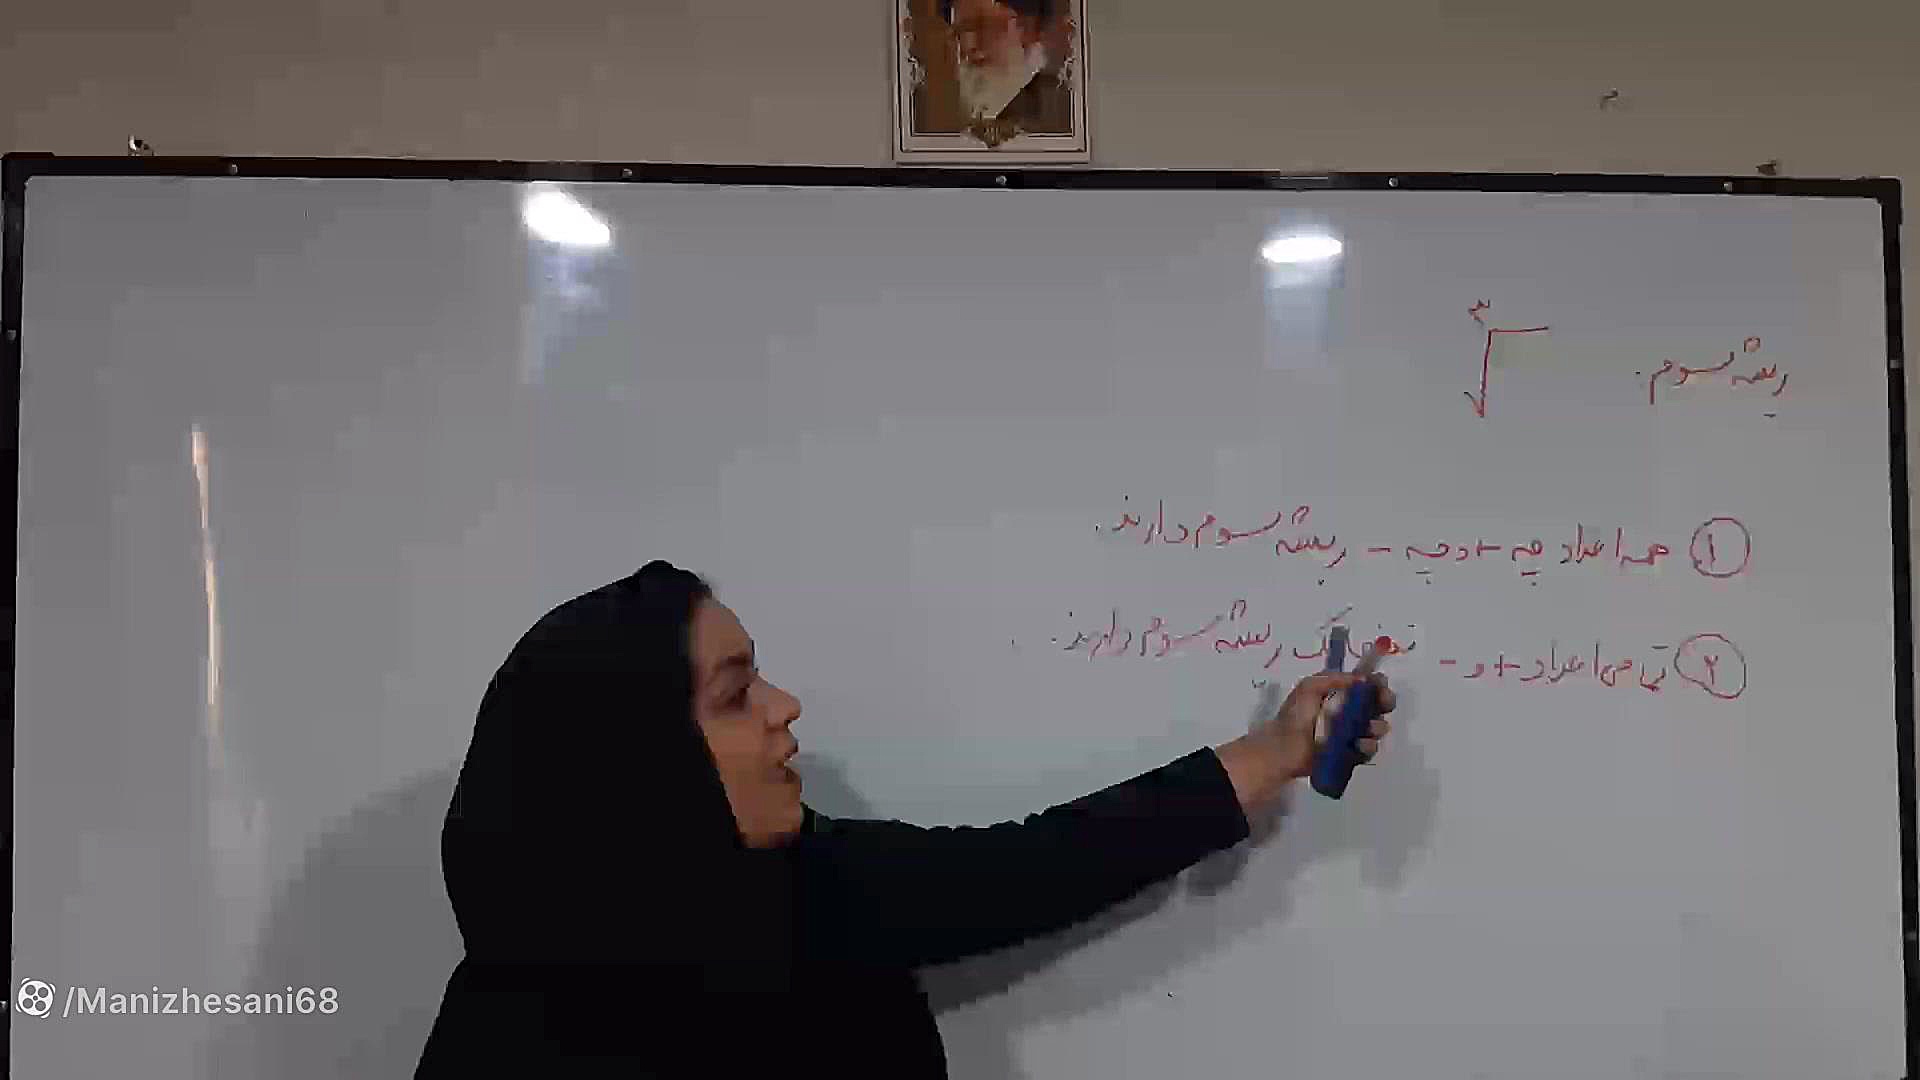 ریشه سوم: ∛
① همه اعداد چه + و چه - ریشه سوم دارند.
② تمامی اعداد + و - فقط یک ریشه سوم دارند.
/Manizhesani68